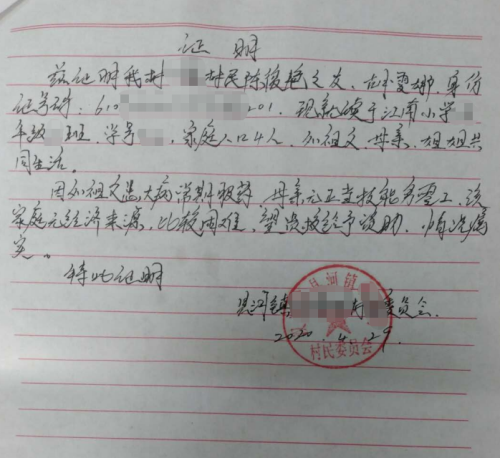 证明
兹证明我村 村民陈俊艳之女,
证号码:610 201. 现就读于江南小学
年级 班,学号 ,家庭人口4人,和祖父、母亲、姐姐共
同生活。
因和祖父患大病常期服药,母亲无正当技能务零工,该
家庭无经济来源,比较困难,望贵校给予资助,情况属
实。
特此证明
吴河镇 村 委员会
2020 4.29.
村民委员会